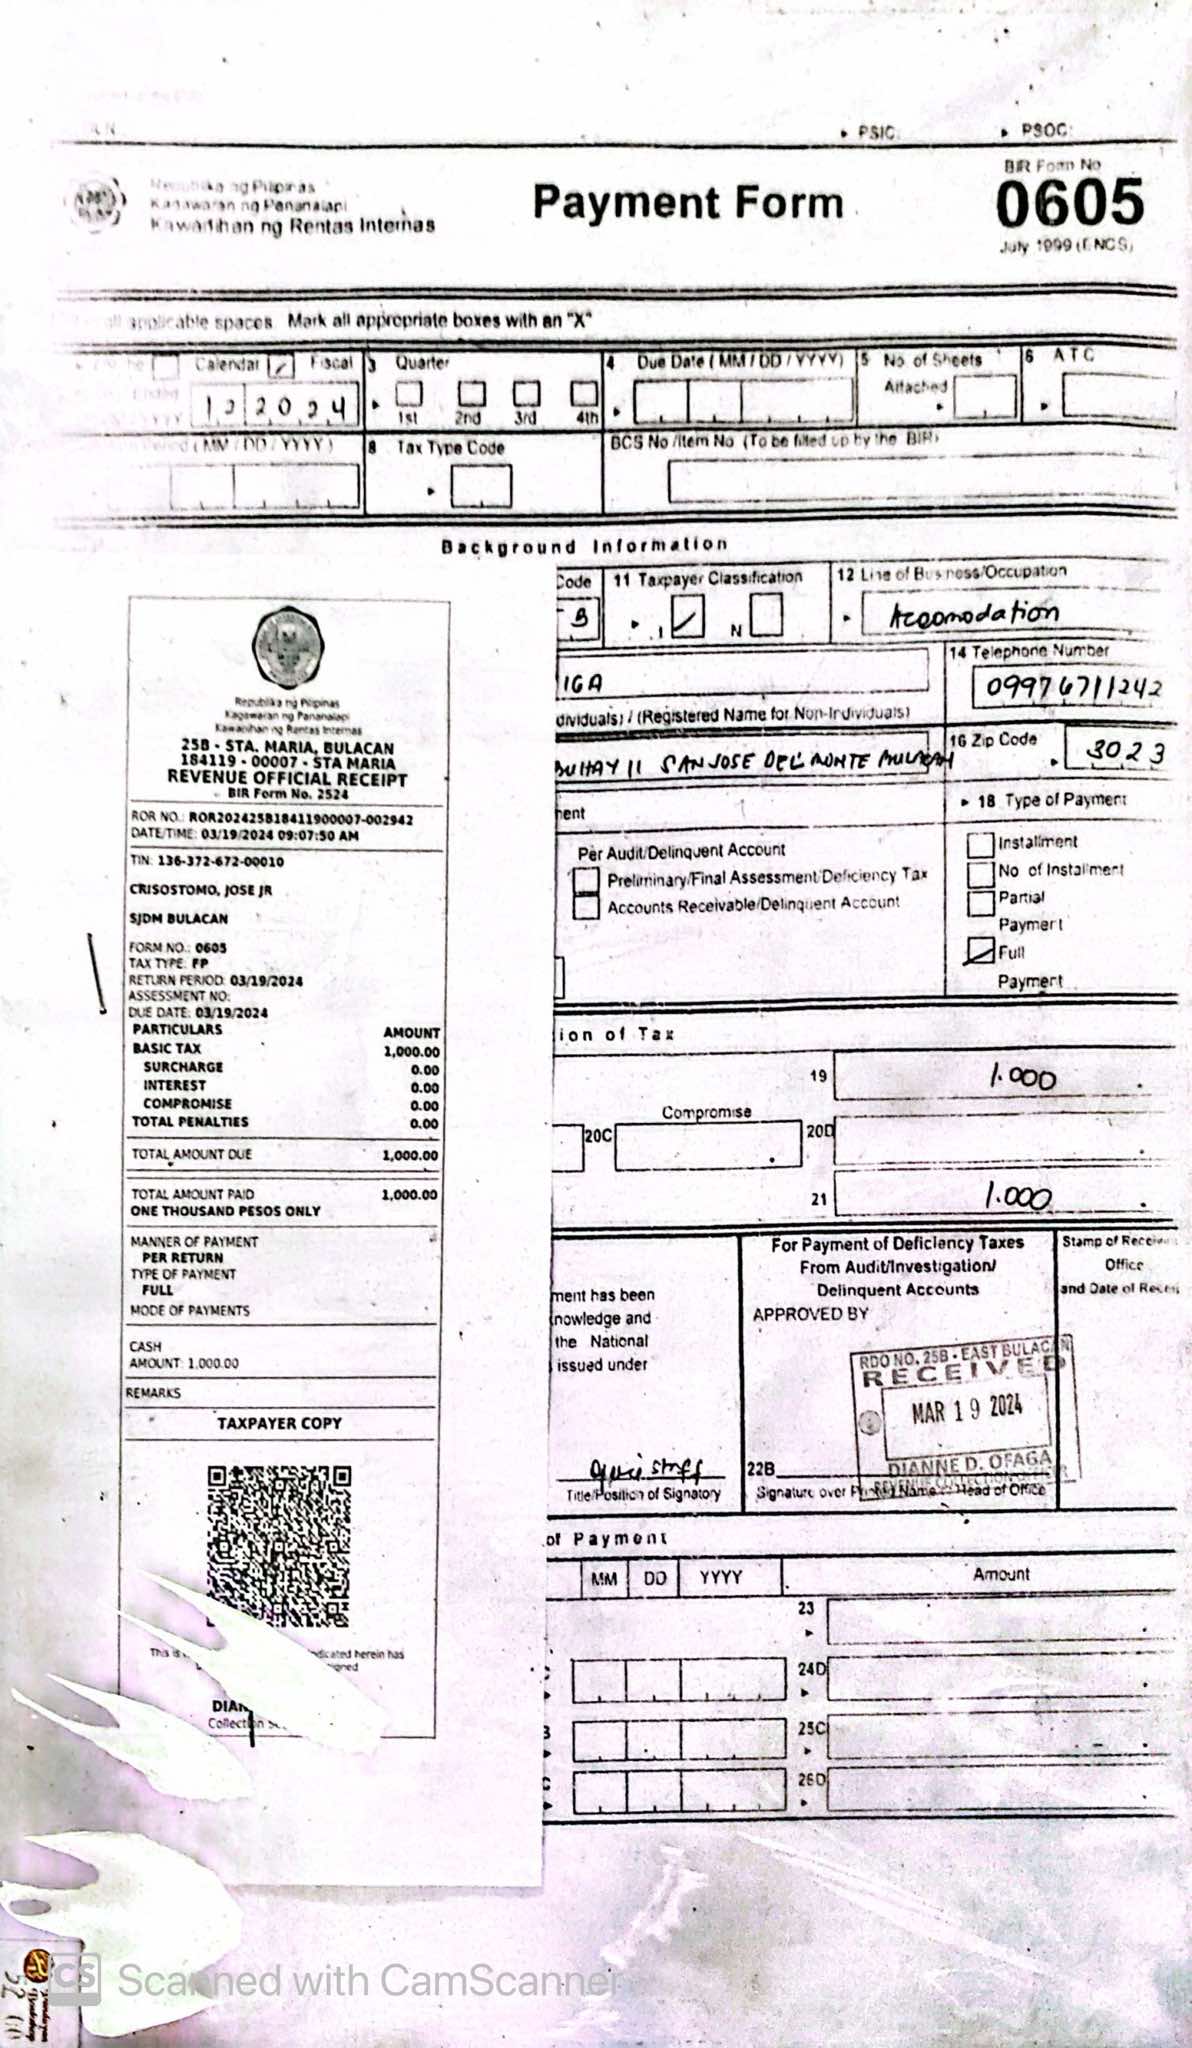 PSIC:
PSOC:
Republika ng Pilipinas
Kagawaran ng Pananalapi
Kawanihan ng Rentas Internas
Payment Form
BIR Form No
0605
July 1999 (ENCS)
all applicable spaces. Mark all appropriate boxes with an "X"
Calendar
Fiscal
3 Quarter
4 Due Date ( MM / DD / YYYY)
5 No. of Sheets
Attached
6 A T C
12 2024
1st 2nd 3rd 4th
( MM / DD / YYYY )
8 Tax Type Code
BCS No /Item No (To be filled up by the BIR)
Background Information
Code
11 Taxpayer Classification
12 Line of Business/Occupation
B
I
N
Accomodation
14 Telephone Number
IGA
09976711242
dividuals) / (Registered Name for Non-Individuals)
16 Zip Code
BUHAY II SAN JOSE DEL MONTE BULACAN
3023
ment
18 Type of Payment
Per Audit/Delinquent Account
Preliminary/Final Assessment/Deficiency Tax
Accounts Receivable/Delinquent Account
Installment
No of Installment
Partial
Payment
Full
Payment
ion of Tax
19
1.000
Compromise
20C
20D
21
1.000
For Payment of Deficiency Taxes
From Audit/Investigation/
Delinquent Accounts
APPROVED BY
Stamp of Receiving
Office
and Date of Receipt
ment has been
nowledge and
the National
issued under
RDO NO. 25B - EAST BULACAN
RECEIVED
MAR 19 2024
DIANNE D. OFAGA
REVENUE COLLECTION OFFICER
staff
Title/Position of Signatory
22B
Signature over Printed Name of Head of Office
of Payment
MM DD YYYY
Amount
23
24D
25C
26D
Republika ng Pilipinas
Kagawaran ng Pananalapi
Kawanihan ng Rentas Internas
25B - STA. MARIA, BULACAN
184119 - 00007 - STA MARIA
REVENUE OFFICIAL RECEIPT
BIR Form No. 2524
ROR NO.: ROR202425B18411900007-002942
DATE/TIME: 03/19/2024 09:07:50 AM
TIN: 136-372-672-00010
CRISOSTOMO, JOSE JR
SJDM BULACAN
FORM NO.: 0605
TAX TYPE: FP
RETURN PERIOD: 03/19/2024
ASSESSMENT NO:
DUE DATE: 03/19/2024
PARTICULARS AMOUNT
BASIC TAX 1,000.00
SURCHARGE 0.00
INTEREST 0.00
COMPROMISE 0.00
TOTAL PENALTIES 0.00
TOTAL AMOUNT DUE 1,000.00
TOTAL AMOUNT PAID 1,000.00
ONE THOUSAND PESOS ONLY
MANNER OF PAYMENT
PER RETURN
TYPE OF PAYMENT
FULL
MODE OF PAYMENTS
CASH
AMOUNT: 1,000.00
REMARKS
TAXPAYER COPY
This is
dicated herein has
igned
DIAN
Collection
CS Scanned with CamScanner